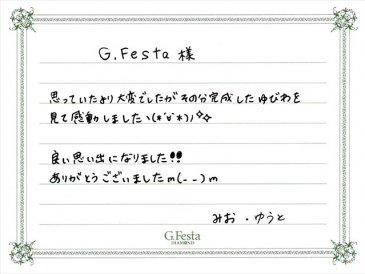 G.Festa 様
思っていたより大変でしたが その分完成した ゆびわを
見て感動しましたヽ(*´∀`*)ノ✧✧
良い思い出になりました!!
ありがとうございましたm(_ _)m
みお・ゆうと
G.Festa
DIAMOND